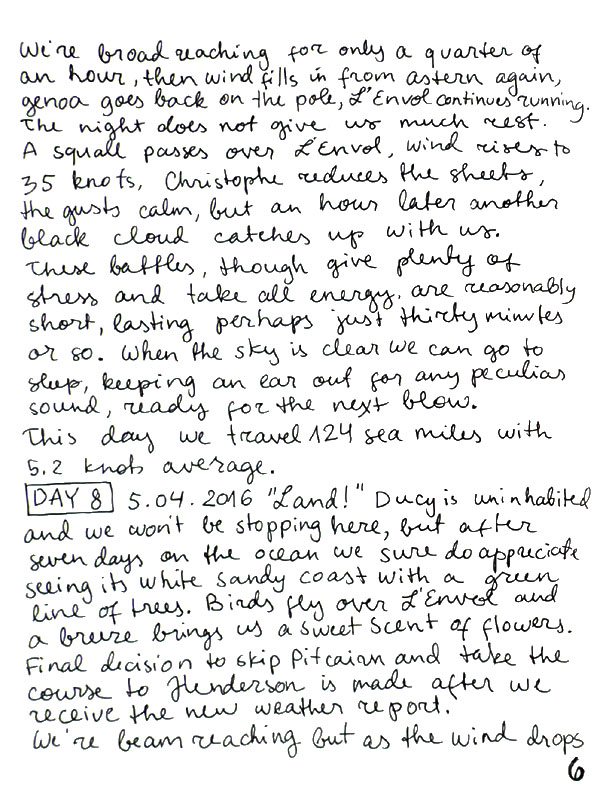 We're broad reaching for only a quarter of
an hour, then wind fills in from astern again,
genoa goes back on the pole, L'Envol continues running.
The night does not give us much rest.
A squall passes over L'Envol, wind rises to
35 knots, Christophe reduces the sheets,
the gusts calm, but an hour later another
black cloud catches up with us.
These battles, though give plenty of
stress and take all energy, are reasonably
short, lasting perhaps just thirty minutes
or so. When the sky is clear we can go to
sleep, keeping an ear out for any peculiar
sound, ready for the next blow.
This day we travel 124 sea miles with
5.2 knots average.
DAY 8 5.04.2016 "Land!" Ducy is uninhabited
and we won't be stopping here, but after
seven days on the ocean we sure do appreciate
seeing its white sandy coast with a green
line of trees. Birds fly over L'Envol and
a breeze brings us a sweet scent of flowers.
Final decision to skip Pitcairn and take the
course to Henderson is made after we
receive the new weather report.
We're beam reaching but as the wind drops
6